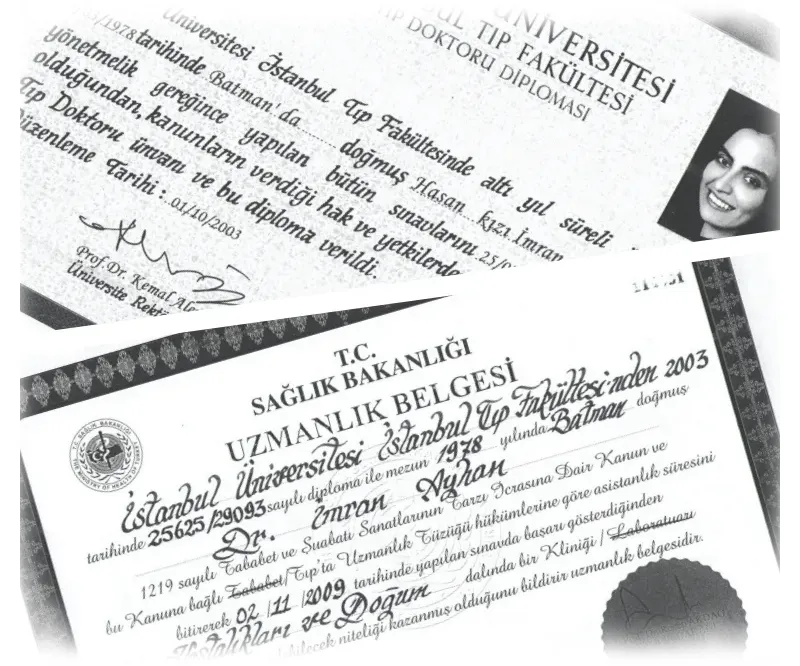 ÜNİVERSİTESİ
TIP FAKÜLTESİ
TIP DOKTORU DİPLOMASI
Üniversitesi İstanbul Tıp Fakültesinde altı yıl süreli
1978 tarihinde Batman'da doğmuş Hasan kızı İmran
yönetmelik gereğince yapılan bütün sınavlarını 25/
olduğundan, kanunların verdiği hak ve yetkilerde
Tıp Doktoru ünvanı ve bu diploma verildi.
Düzenleme Tarihi : 01/10/2003
Prof. Dr. Kemal
Üniversite Rektö
T.C.
SAĞLIK BAKANLIĞI
UZMANLIK BELGESİ
T.C. SAĞLIK BAKANLIĞI
MINISTRY OF HEALTH OF TURKEY
İstanbul Üniversitesi İstanbul Tıp Fakültesi'nden 2003
tarihinde 25625/29093 sayılı diploma ile mezun 1978 yılında Batman doğmuş
Dr. İmran Ayhan
1219 sayılı Tababet ve Şuabatı Sanatlarının Tarzı İcrasına Dair Kanun ve
bu Kanuna bağlı Tababet/Tıp'ta Uzmanlık Tüzüğü hükümlerine göre asistanlık süresini
bitirerek 02/11/2009 tarihinde yapılan sınavda başarı gösterdiğinden
Hastalıkları ve Doğum dalında bir Kliniği / Laboratuarı
bilecek niteliği kazanmış olduğunu bildirir uzmanlık belgesidir.